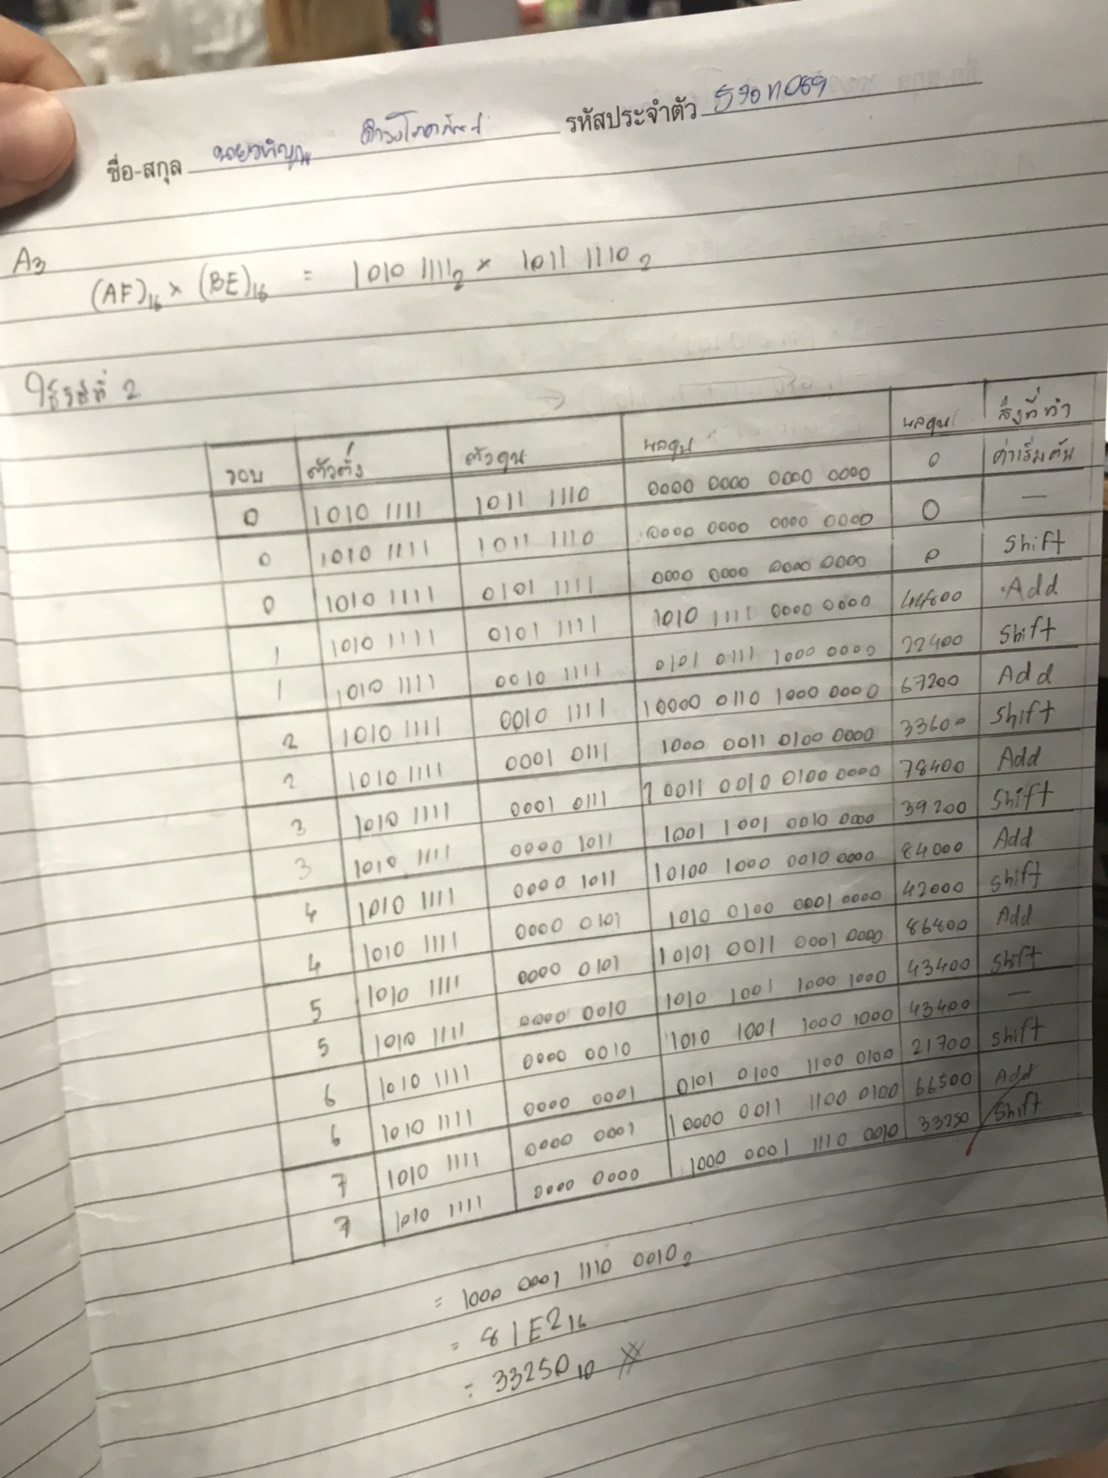 ชื่อ-สกุล รหัสประจำตัว
A3
(AF)₁₆ × (BE)₁₆ = 1010 1111₂ × 1011 1110₂
ใช้วิธีที่ 2
รอบ ตัวตั้ง ตัวคูณ ผลคูณ ผลคูณ สิ่งที่ทำ
0 1010 1111 1011 1110 0000 0000 0000 0000 0 ค่าเริ่มต้น
0 1010 1111 1011 1110 0000 0000 0000 0000 0 —
0 1010 1111 0101 1111 0000 0000 0000 0000 0 Shift
1 1010 1111 0101 1111 1010 1111 0000 0000 44800 Add
1 1010 1111 0010 1111 0101 0111 1000 0000 22400 Shift
2 1010 1111 0010 1111 10000 0110 1000 0000 67200 Add
2 1010 1111 0001 0111 1000 0011 0100 0000 33600 Shift
3 1010 1111 0001 0111 10011 0010 0100 0000 78400 Add
3 1010 1111 0000 1011 1001 1001 0010 0000 39200 Shift
4 1010 1111 0000 1011 10100 1000 0010 0000 84000 Add
4 1010 1111 0000 0101 1010 0100 0001 0000 42000 Shift
5 1010 1111 0000 0101 10101 0011 0001 0000 86800 Add
5 1010 1111 0000 0010 1010 1001 1000 1000 43400 Shift
6 1010 1111 0000 0010 1010 1001 1000 1000 43400 —
6 1010 1111 0000 0001 0101 0100 1100 0100 21700 Shift
7 1010 1111 0000 0001 10000 0011 1100 0100 66500 Add
7 1010 1111 0000 0000 1000 0001 1110 0010 33250 Shift
= 1000 0001 1110 0010₂
= 81E2₁₆
= 33250₁₀